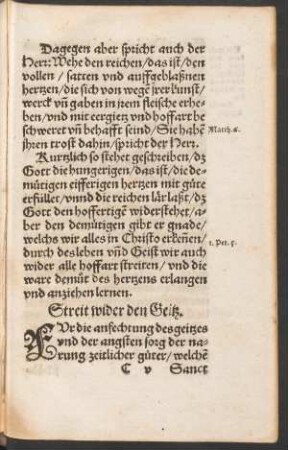 Dagegen aber spricht auch der
Herr: Wehe den reichen / das ist / den
vollen / satten vnd auffgeblaßnen
hertzen / die sich von wegē jrer kunst /
werck vñ gaben in jrem fleische erhe-
ben / vnd mit eergietz vnd hoffart be
schweret vñ behafft seind / Sie habē
jhren trost dahin / spricht der Herr.
Matth. 6.
Kurtzlich so stehet geschreiben / dz
Gott die hungerigen / das ist / die de-
mütigen eifferigen hertzen mit güte
erfüllet / vnnd die reichen lär laßt / dz
Gott den hoffertigē widerstehet / a-
ber den demütigen gibt er gnade /
welchs wir alles in Christo erkeñen /
1. Pet. 5.
durch des leben vñd Geist wir auch
wider alle hoffart streiten / vnd die
ware demüt des hertzens erlangen
vnd anziehen lernen.
Streit wider den Geitz.
FVr die anfechtung des geitzes
vnd der angsten sorg der na-
rung zeitlicher güter / welchē
C v Sanct